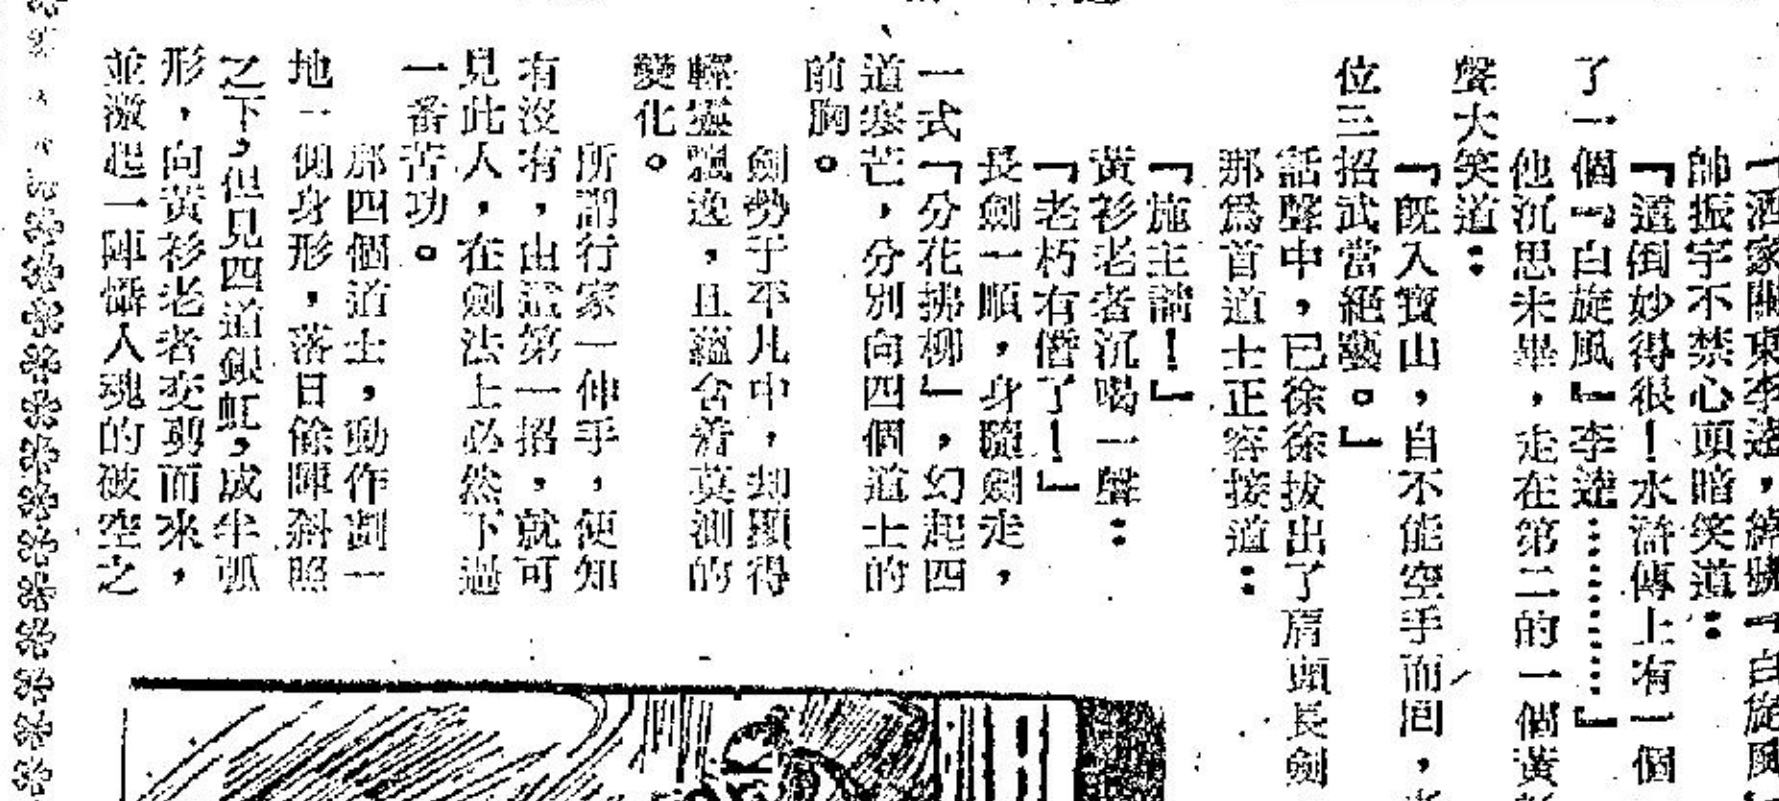 『洒家關東李逵，綽號『白旋風』
帥振宇不禁心頭暗笑道：
『這倒妙得很！水滸傳上有一個
了一個『白旋風』李逵…………』
他沉思未畢，走在第二的一個黃
聲大笑道：
『旣入寶山，自不能空手而囘，
位三招武當絕藝。』
話聲中，已徐徐拔出了肩頭長劍
那爲首道士正容接道：
『施主請！』
黃衫老者沉喝一聲：
『老朽有僭了！』
長劍一順，身隨劍走，
一式『分花拂柳』，幻起四
道寒芒，分別向四個道士的
前胸。
劍勢于平凡中，却顯得
輕靈飄逸，且蘊含着莫測的
變化。
所謂行家一伸手，便知
有沒有，由這第一招，就可
見此人，在劍法上必然下過
一番苦功。
那四個道士，動作劃一
地一側身形，落日餘暉斜照
之下，但見四道銀虹，成半弧
形，向黃衫老者交剪而來，
並激起一陣懾人魂的破空之